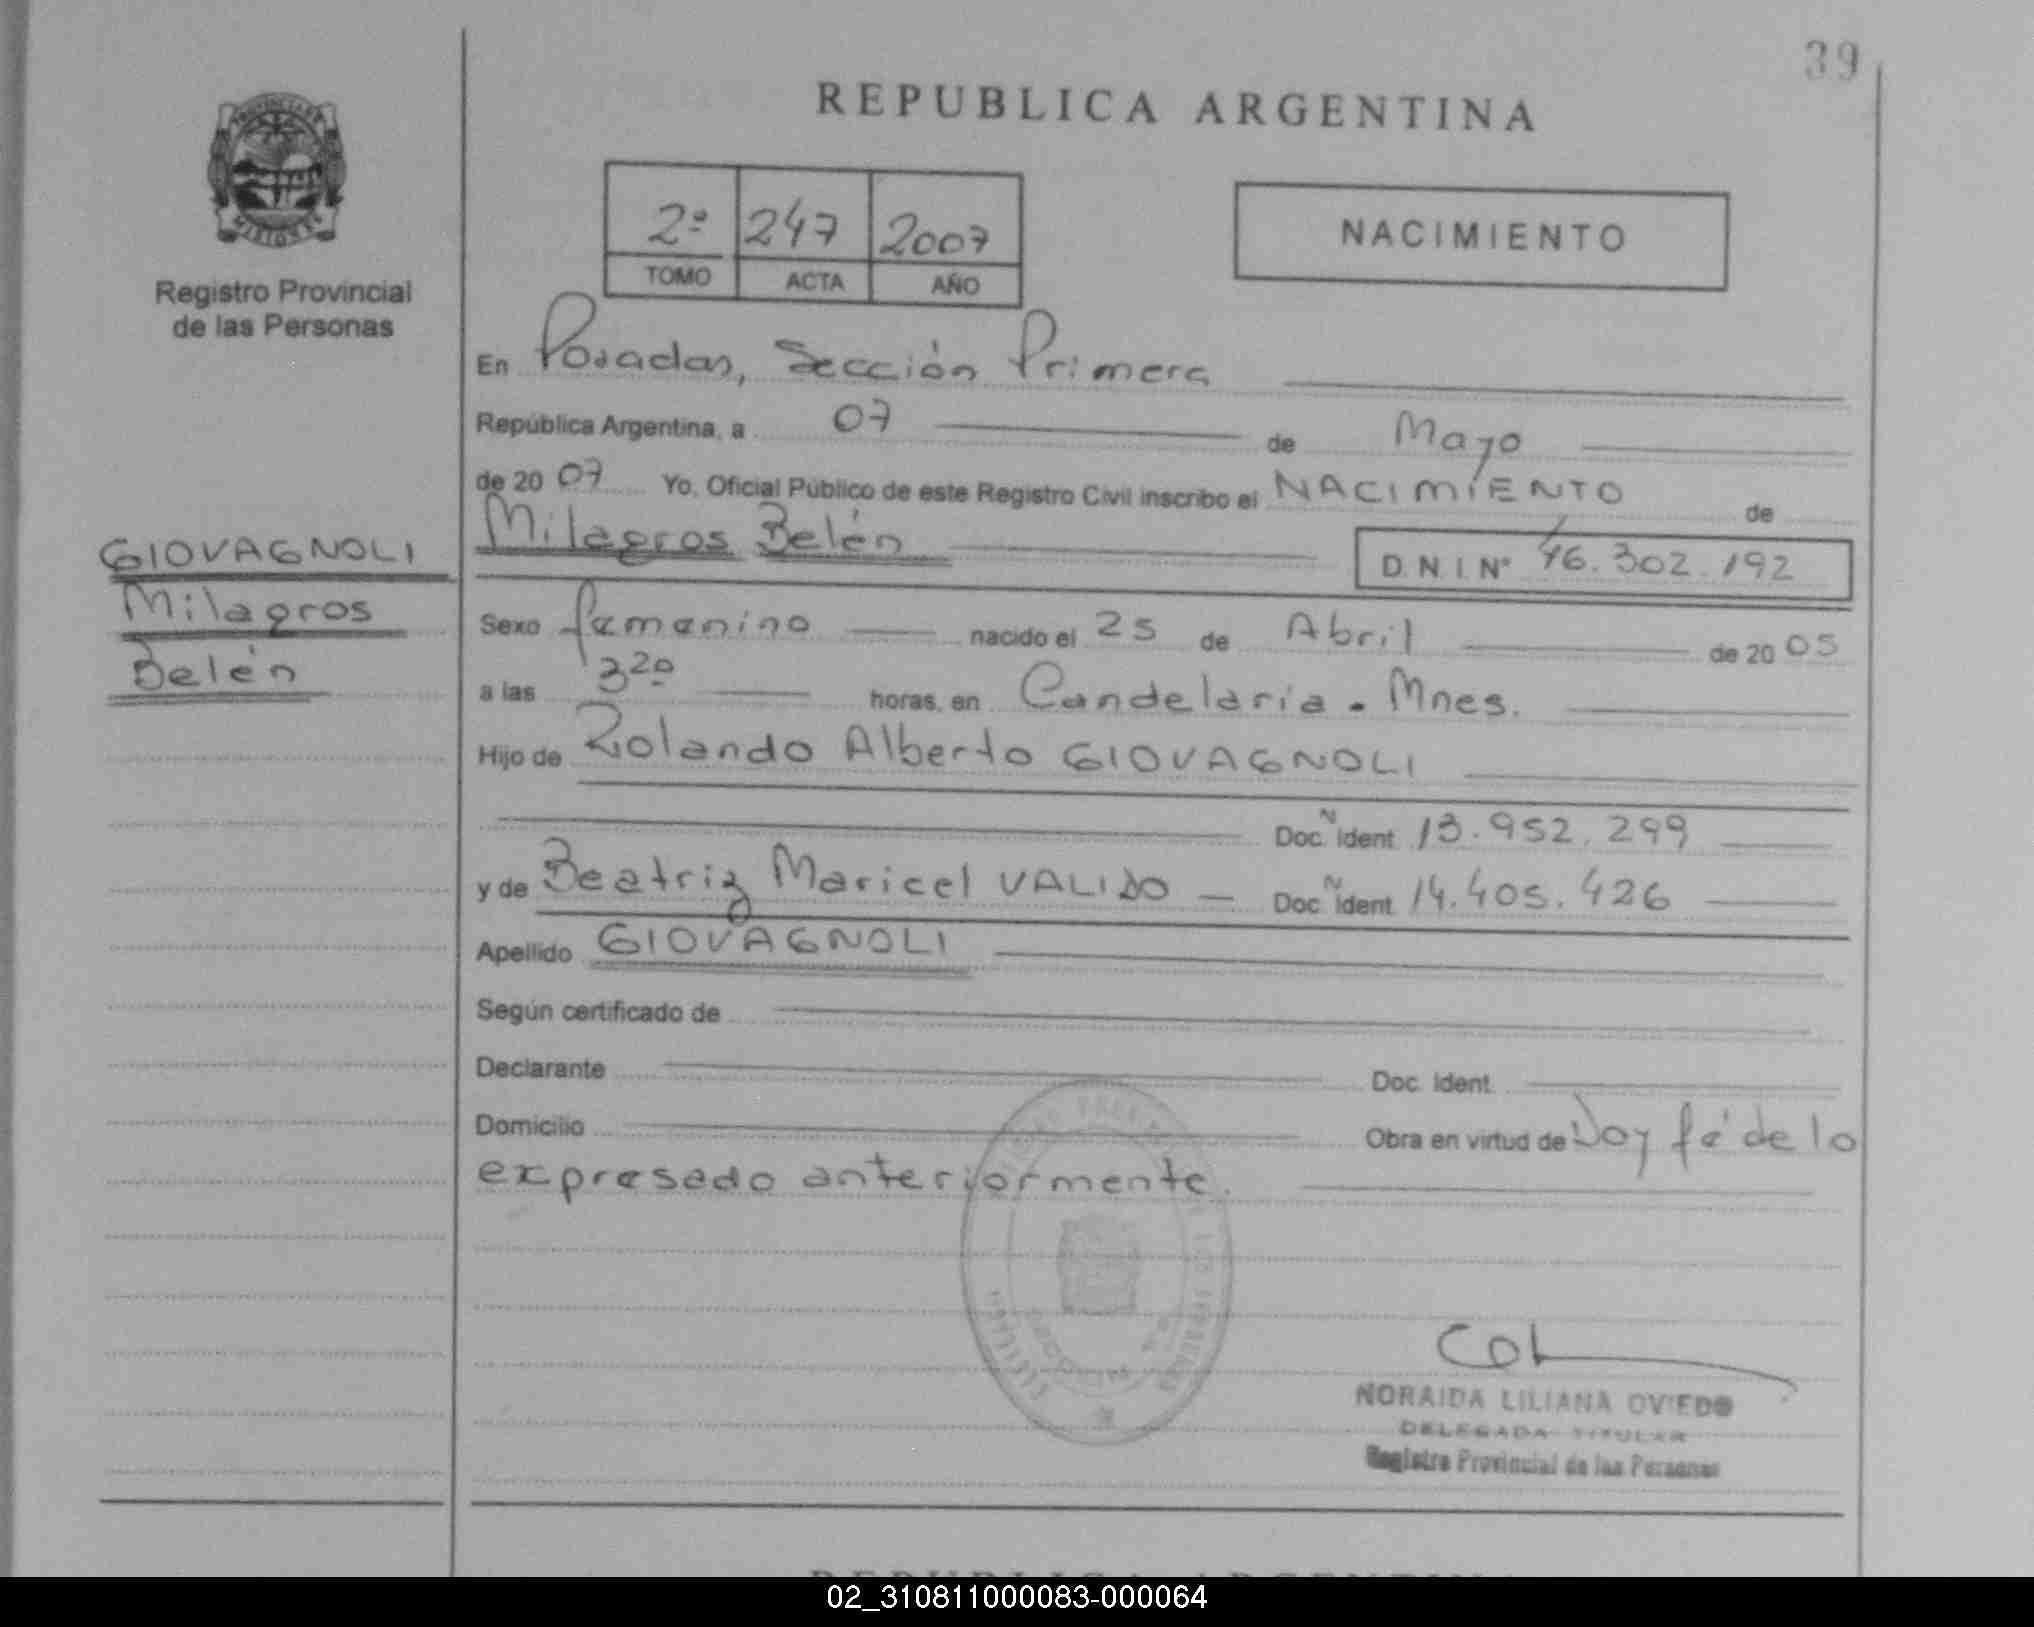 39
REPUBLICA ARGENTINA
PROVINCIA DE
MISIONES
2º 247 2007
TOMO ACTA AÑO
NACIMIENTO
Registro Provincial
de las Personas
En Posadas, Sección Primera
República Argentina, a 07 de Mayo
de 2007 Yo, Oficial Público de este Registro Civil inscribo el NACIMIENTO de
GIOVAGNOLI
Milagros
Belén
Milagros Belén D.N.I. Nº 46.302.192
Sexo femenino nacido el 25 de Abril de 2005
a las 320 horas, en Candelaria - Mnes.
Hijo de Rolando Alberto GIOVAGNOLI
Doc. N Ident 13.952.299
y de Beatriz Maricel VALIDO — Doc. N Ident 14.405.426
Apellido GIOVAGNOLI
Según certificado de
Declarante Doc. Ident.
Domicilio Obra en virtud de Doy fé de lo
expresado anteriormente.
NORAIDA LILIANA OVIEDO
DELEGADA TITULAR
Registro Provincial de las Personas
REPUBLICA ARGENTINA
02_310811000083-000064